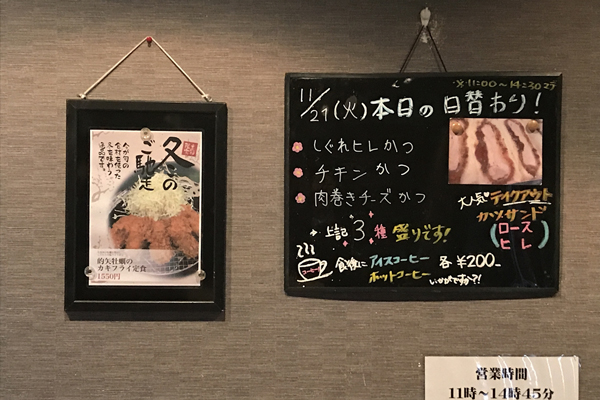 冬の
ご馳走
的矢牡蠣の
カキフライ定食
1550円
※11:00〜14:30まで
11/21(火)本日の日替わり!
しぐれヒレかつ
チキンかつ
肉巻きチーズかつ
上記3種盛りです!
大人気
テイクアウト
カツサンド
(ロース
ヒレ)
コーヒー
食後に アイスコーヒー
ホットコーヒー
各¥200-
いかがですか?!
営業時間
11時〜14時45分